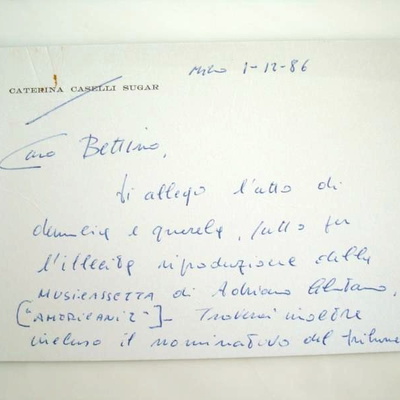 Milano 1-12-86
CATERINA CASELLI SUGAR
Caro Bettino,
Ti allego l'atto di
denuncia e querela, fatto per
l'illecita riproduzione della
MUSICASSETTA di Adriano Celentano,
["AMERICANI Z"]- Troverai inoltre
incluso il nominativo del tribunale